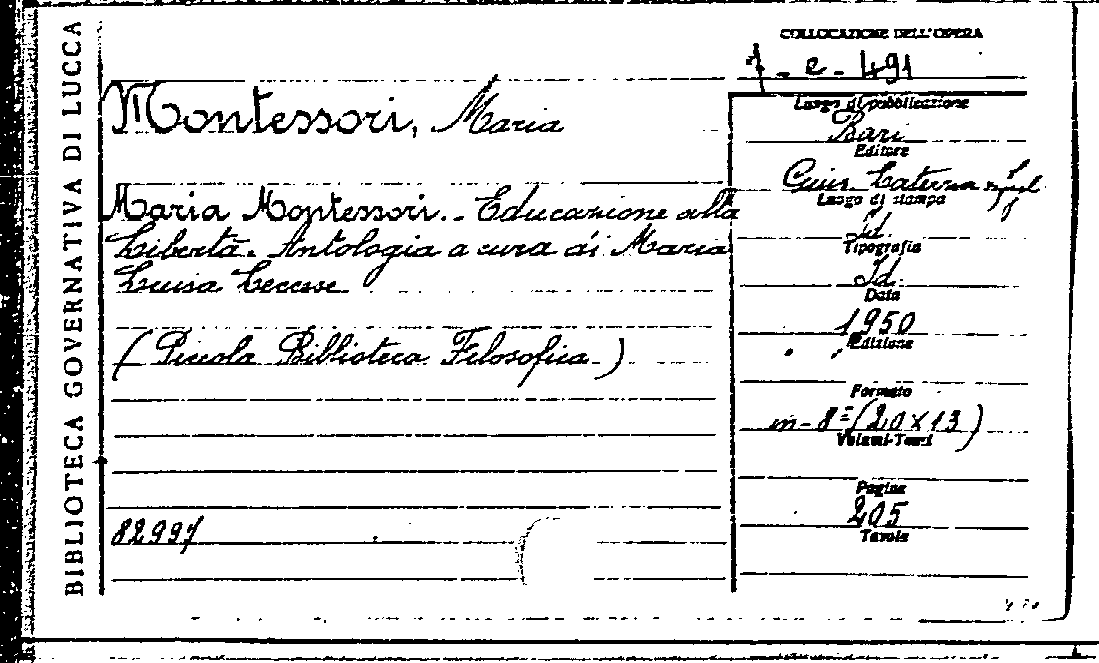 BIBLIOTECA GOVERNATIVA DI LUCCA
Montessori, Maria
Maria Montessori. - Educazione alla
Libertà. Antologia a cura di Maria
Luisa Leccese
(Piccola Biblioteca Filosofica.)
82997
COLLOCAZIONE DELL'OPERA
- e - 491
Luogo di pubblicazione
Bari
Editore
Gius. Laterza
Luogo di stampa
Id.
Tipografia
Id.
Data
1950
Edizione
Formato
in-8º (20 x 13)
Volumi-Tomi
Pagine
205
Tavole